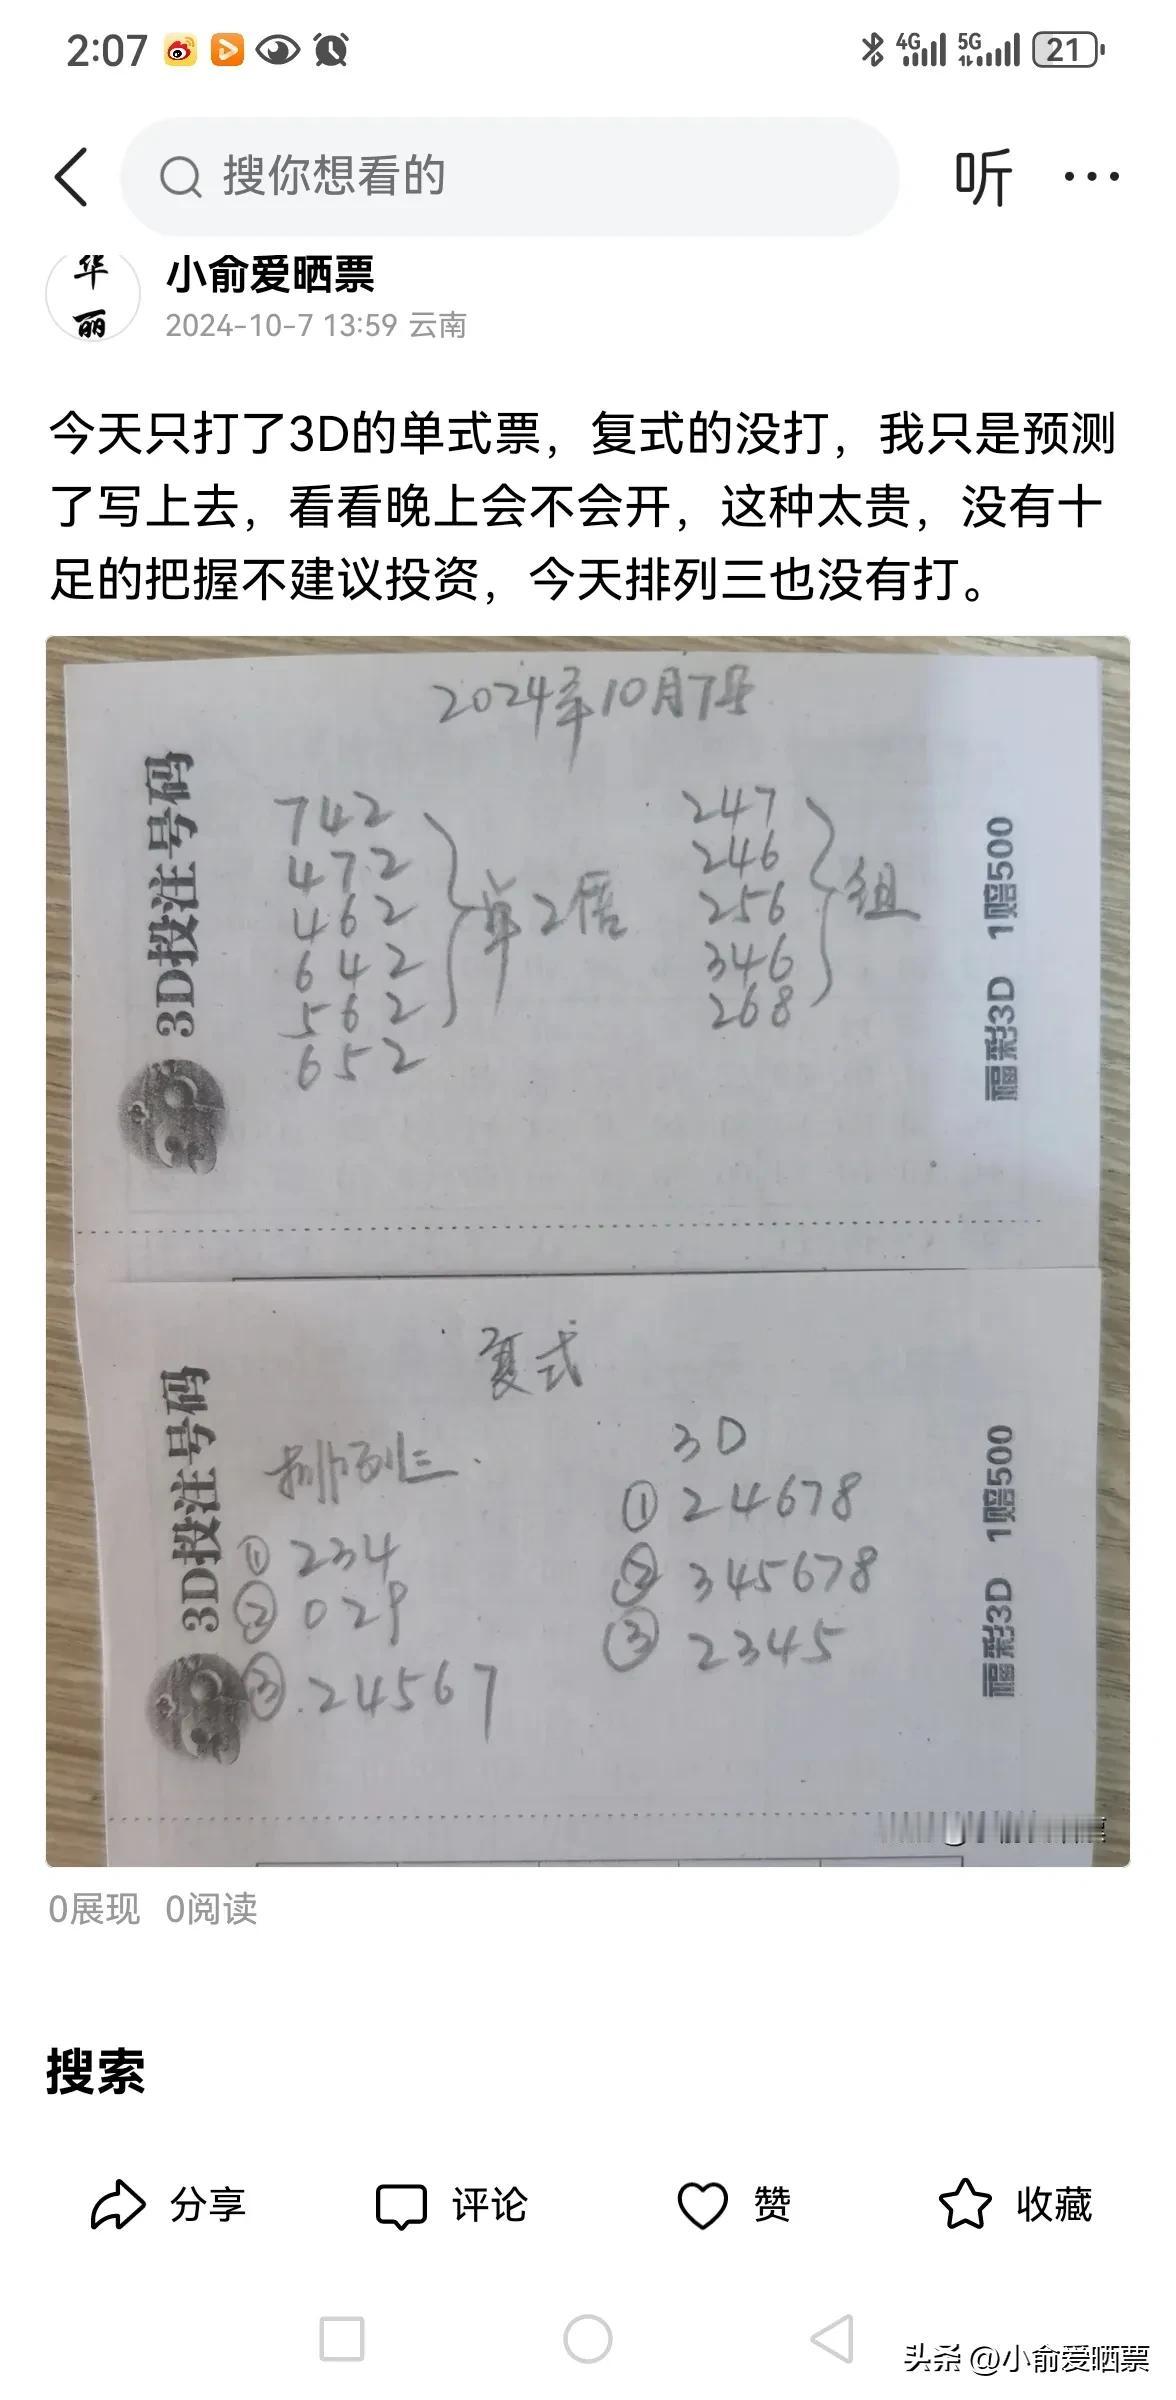 2:07 4G 5G 21
搜你想看的 听
华
丽
小俞爱晒票
2024-10-7 13:59 云南
今天只打了3D的单式票，复式的没打，我只是预测
了写上去，看看晚上会不会开，这种太贵，没有十
足的把握不建议投资，今天排列三也没有打。
2024年10月7号
3D投注号码
742
472
462
642
562
652
单2倍
247
246
256
346
268
组
福彩3D 1赔500
复式
3D投注号码
排列三
① 234
② 029
③ 24567
3D
① 24678
② 345678
③ 2345
福彩3D 1赔500
0展现 0阅读
搜索
分享 评论 赞 收藏
头条 @小俞爱晒票